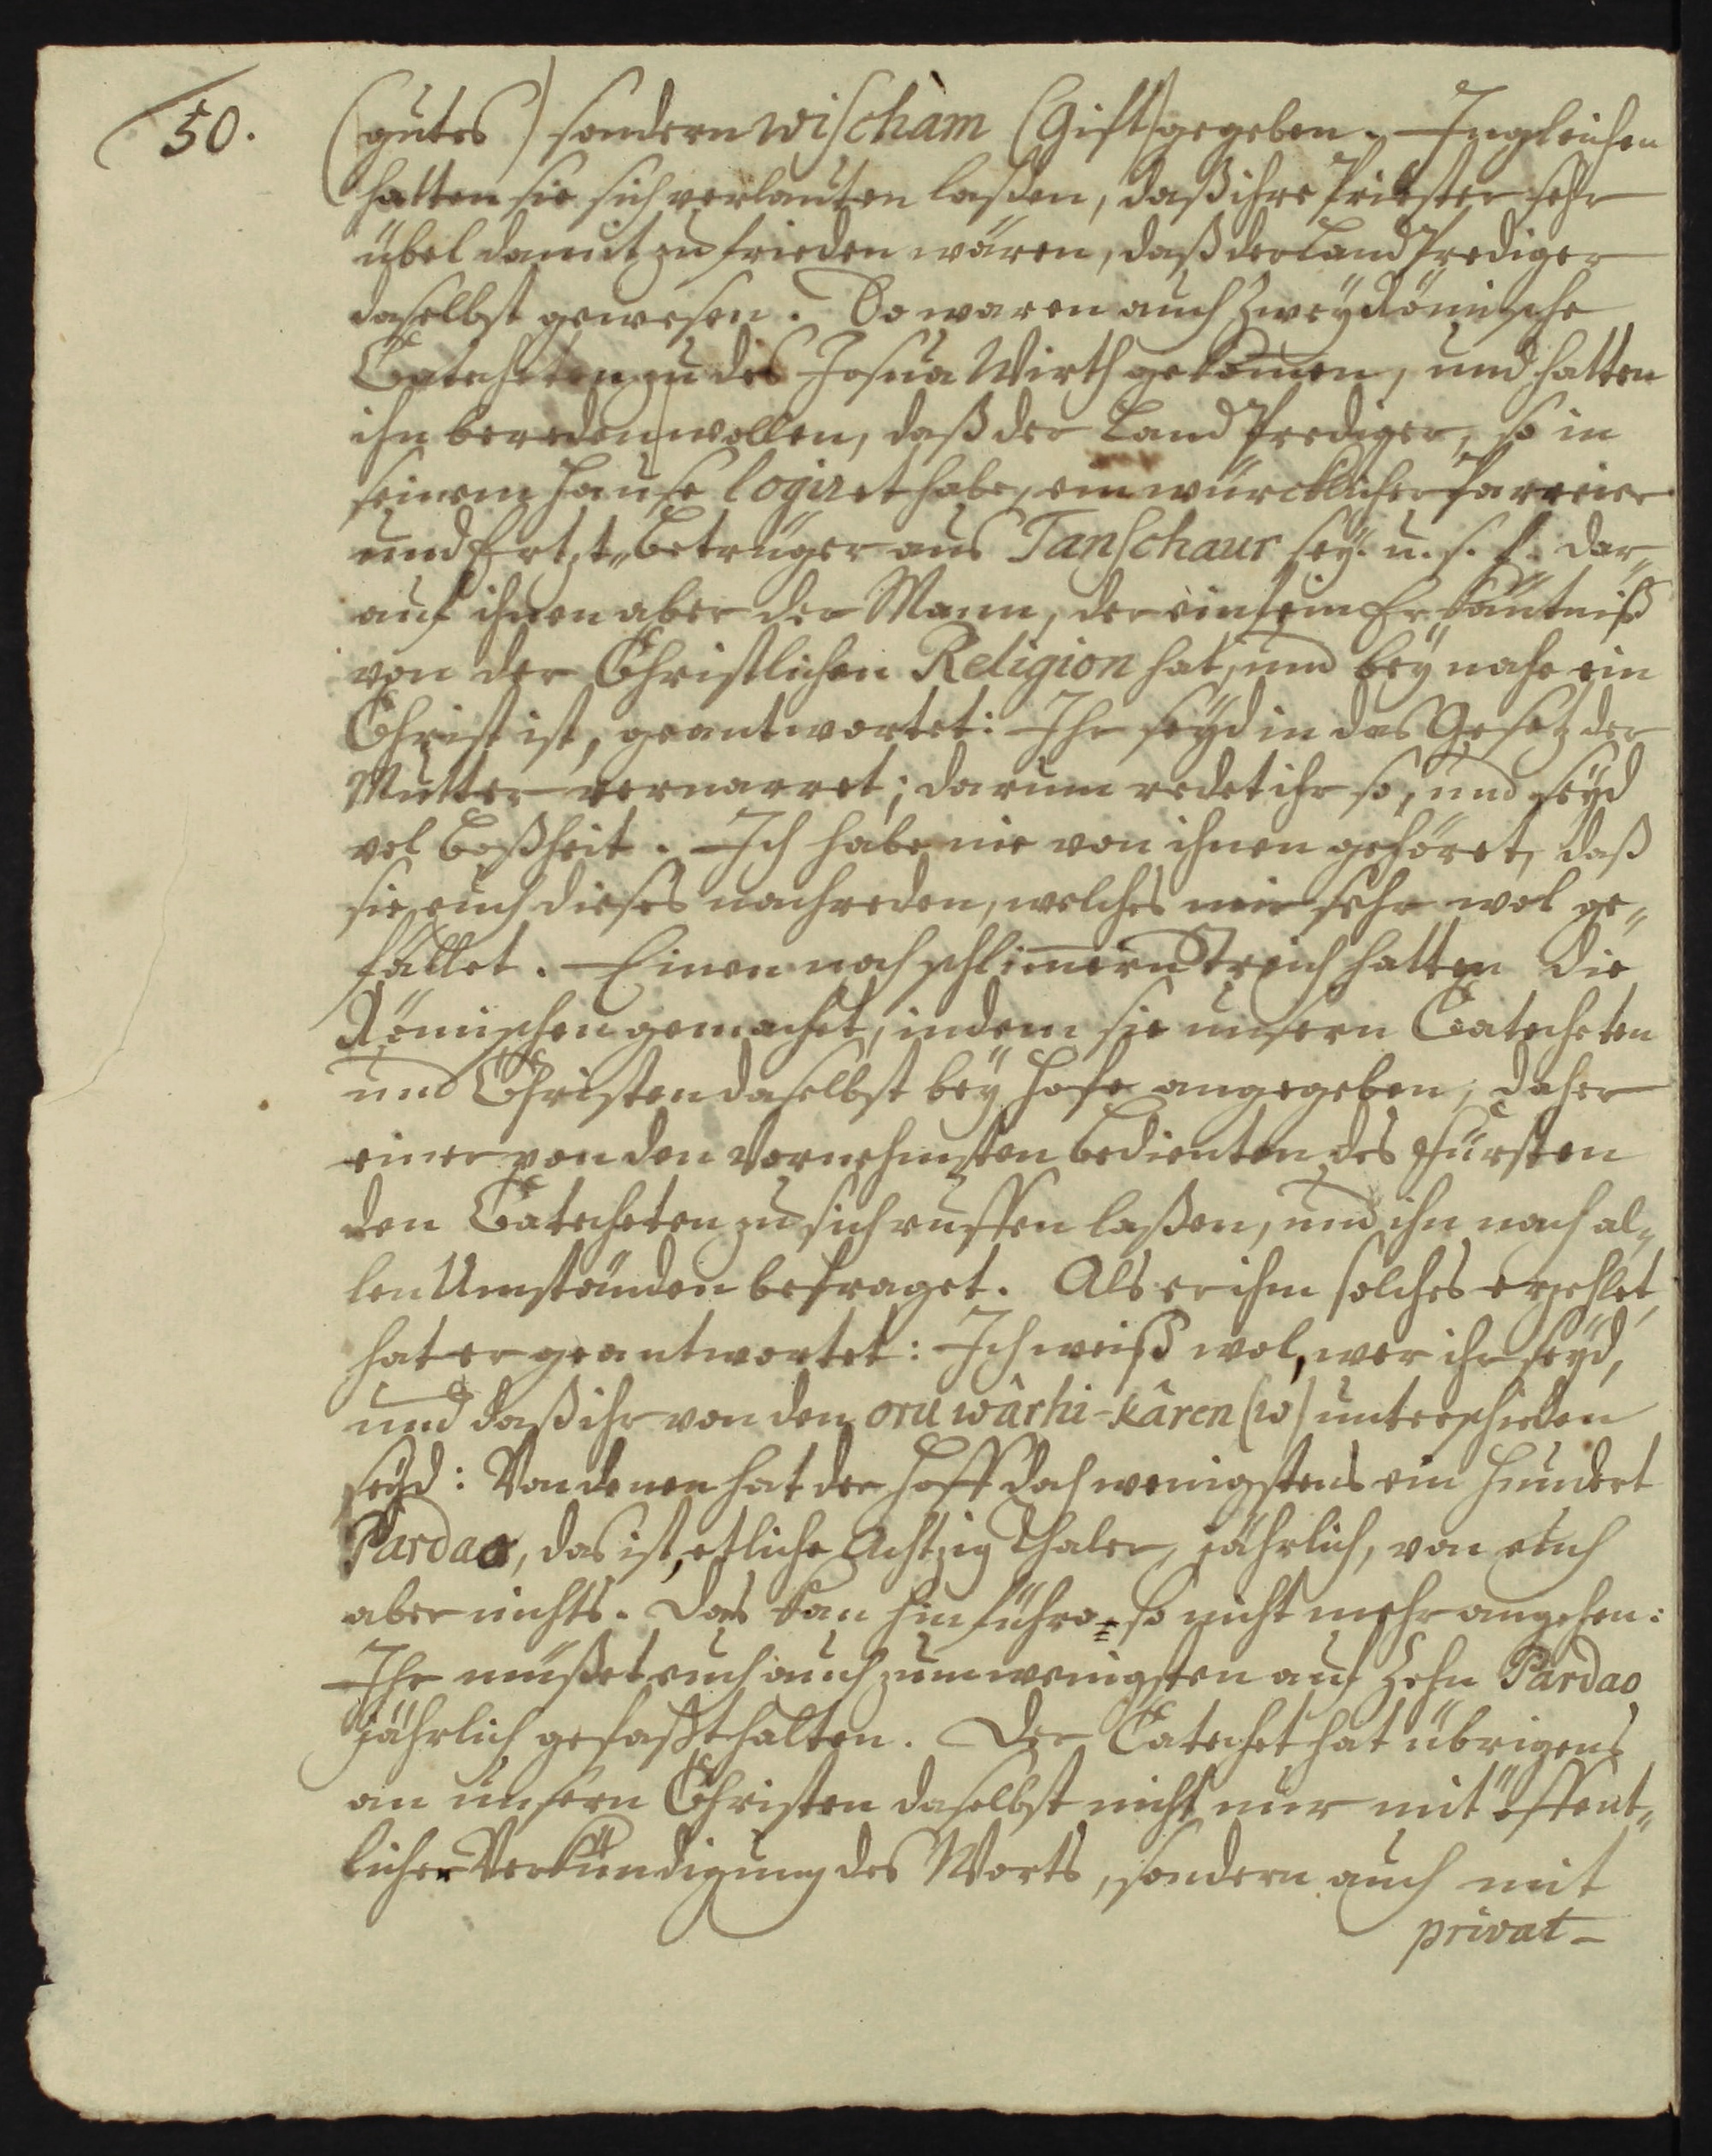 50.
(gutes) sondern wischàm (Gift) gegeben. Ingleichen
hatten sie sich verlauten laßen, daß ihre Priester sehr
übel damit zu frieden wären, daß der Land Prediger
daselbst gewesen. So waren auch zwey Römische
Catecheten zu des Josua Wirth gekom̄en, und hatten
ihn bereden wollen, daß der Land Prediger, so in
seinem Hause logiret habe, ein würcklicher Parreier
und Ertzt„Betrüger aus Tanschaur sey. u. s. f. Dar„
auf ihnen aber der Mann, der ein fein Erkäntniß
von der Christlichen Religion hat, und bey nahe ein
Christ ist, geantwortet: Ihr seyd in das Gesetz der
Mutter vernarret; darum redet ihr so, und seyd
vol Boßheit. Ich habe nie von ihnen gehöret, daß
sie euch dieses nachreden, welches mir sehr wol ge„
fället. Einen noch schlim̄ern Streich hatten die
Römischen gemachet, indem sie unsern Catecheten
und Christen daselbst bey Hofe angegeben, daher
einer von den Vornehmsten bedienten des Fürsten
den Catecheten zu sich ruffen laßen, und ihn nach al„
len Umständen befraget. Als er ihm solches erzehlet,
hat er geantwortet: Ich weiß wol, wer ihr seyd,
und daß ihr von den oru wârhi-kâren (w) unterschieden
seyd: Von denen hat der Hoff doch wenigstens ein hundert
Pardao, das ist, etliche Achtzig Thaler, jährlich, von euch
aber nichts. Das kan hinführo so nicht mehr angehen:
Ihr müßet euch auch zum wenigsten auf Zehn Pardao
jährlich gefaßt halten. Der Catechet hat übrigens
an unsern Christen daselbst nicht nur mit öffent„
licher Verkündigung des Worts, sondern auch mit
privat-